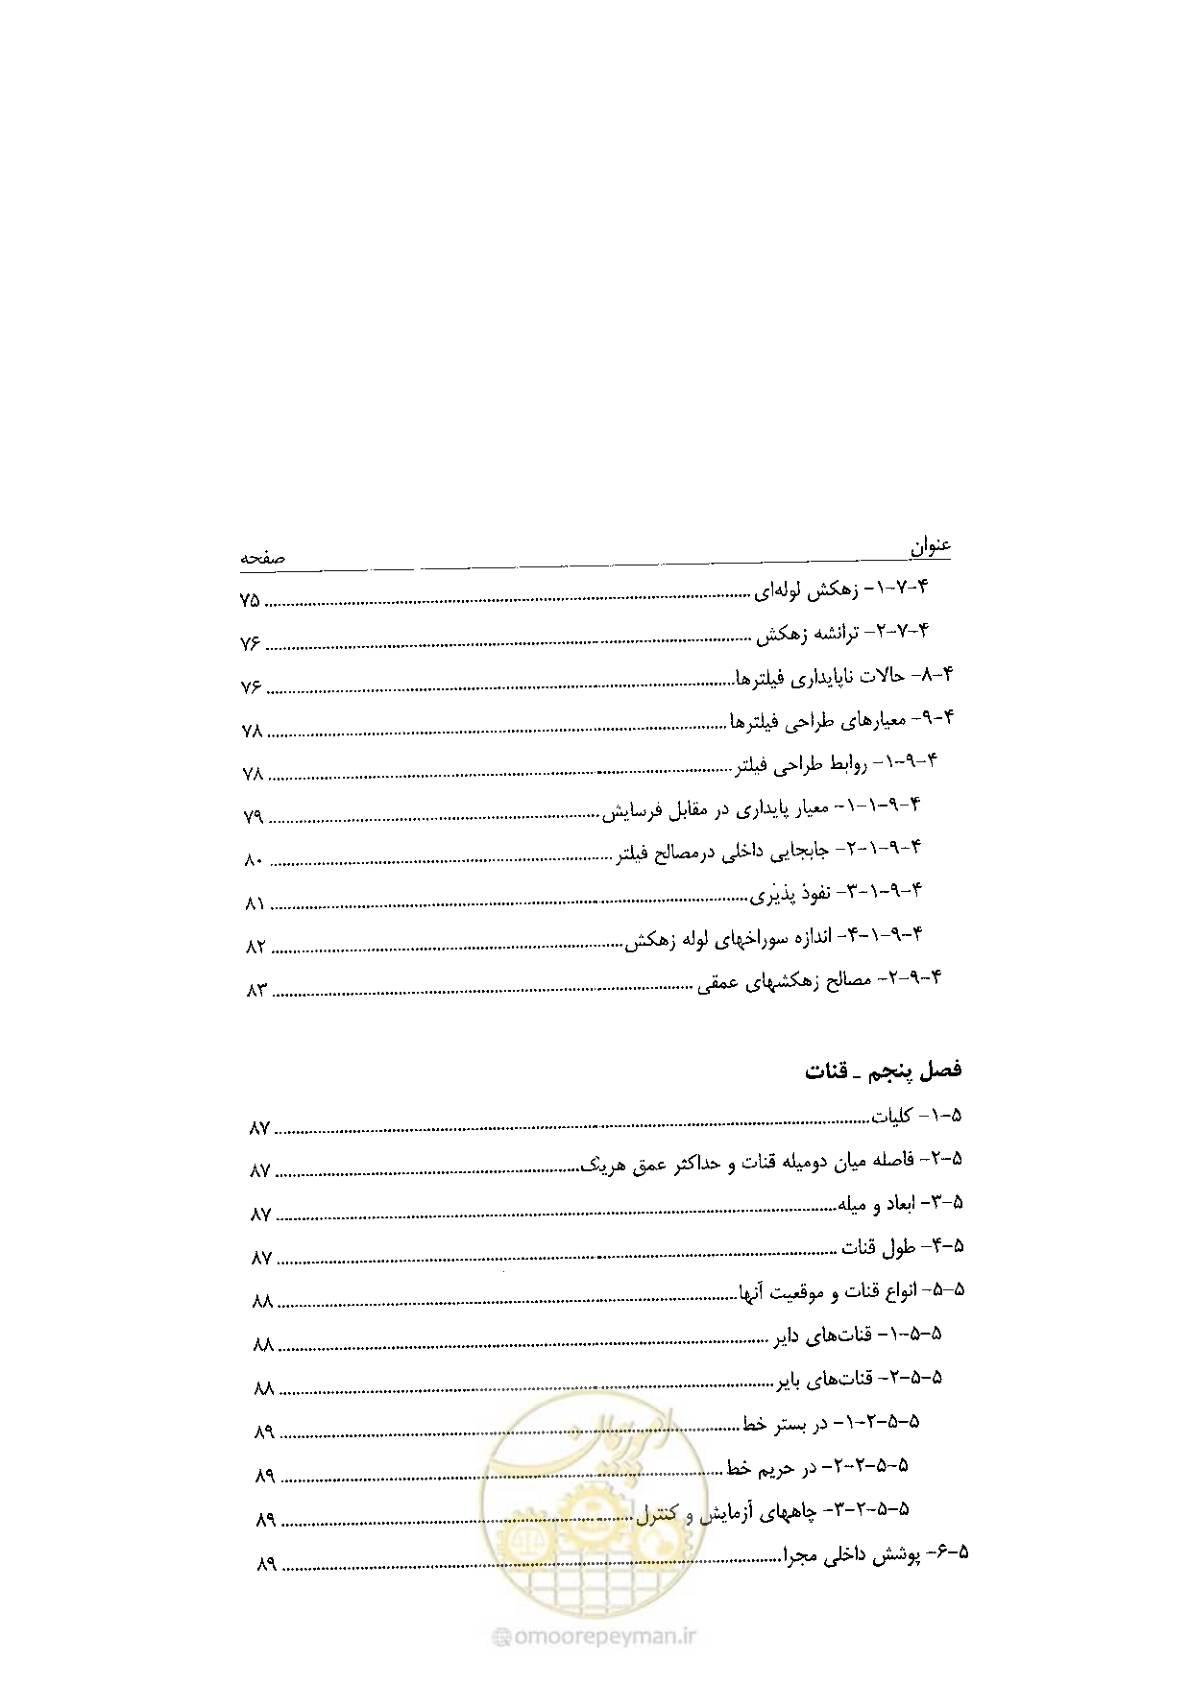 عنوان صفحه
۴-۷-۱- زهکش لوله‌ای ........ ۷۵
۴-۷-۲- ترانشه زهکش ........ ۷۶
۴-۸- حالات ناپایداری فیلترها ........ ۷۶
۴-۹- معیارهای طراحی فیلترها ........ ۷۸
۴-۹-۱- روابط طراحی فیلتر ........ ۷۸
۴-۹-۱-۱- معیار پایداری در مقابل فرسایش ........ ۷۹
۴-۹-۱-۲- جابجایی داخلی درمصالح فیلتر ........ ۸۰
۴-۹-۱-۳- نفوذ پذیری ........ ۸۱
۴-۹-۱-۴- اندازه سوراخهای لوله زهکش ........ ۸۲
۴-۹-۲- مصالح زهکشهای عمقی ........ ۸۳
فصل پنجم ـ قنات
۵-۱- کلیات ........ ۸۷
۵-۲- فاصله میان دومیله قنات و حداکثر عمق هریک ........ ۸۷
۵-۳- ابعاد و میله ........ ۸۷
۵-۴- طول قنات ........ ۸۷
۵-۵- انواع قنات و موقعیت آنها ........ ۸۸
۵-۵-۱- قنات‌های دایر ........ ۸۸
۵-۵-۲- قنات‌های بایر ........ ۸۸
۵-۵-۲-۱- در بستر خط ........ ۸۹
۵-۵-۲-۲- در حریم خط ........ ۸۹
۵-۵-۲-۳- چاههای آزمایش و کنترل ........ ۸۹
۵-۶- پوشش داخلی مجرا ........ ۸۹
امور پیمان
@omoorepeyman.ir